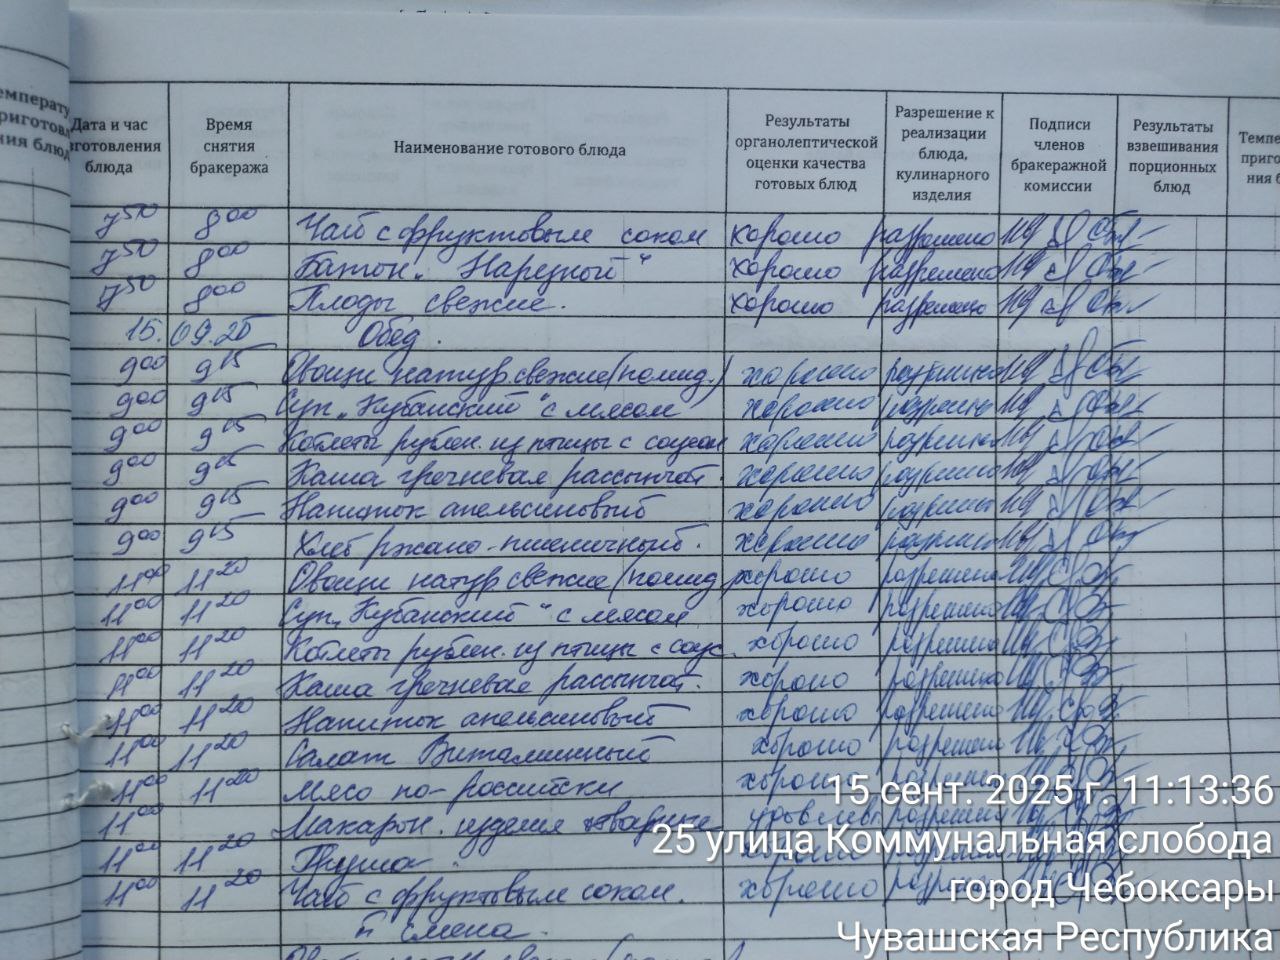 Дата и час готовления блюда
Время снятия бракеража
Наименование готового блюда
Результаты органолептической оценки качества готовых блюд
Разрешение к реализации блюда, кулинарного изделия
Подписи членов бракеражной комиссии
Результаты взвешивания порционных блюд
7 50 8 00 Чай с фруктовым соком хорошо разрешено
7 50 8 00 Батон „Нарезной“ хорошо разрешено
7 50 8 00 Плоды свежие. хорошо разрешено
15.09.25 Обед.
9 00 9 15 Овощи натур. свежие (помид.) хорошо разрешено
9 00 9 15 Суп „Кубанский“ с мясом хорошо разрешено
9 00 9 15 Котлеты рублен. из птицы с соусом хорошо разрешено
9 00 9 15 Каша гречневая рассыпчат. хорошо разрешено
9 00 9 15 Напиток апельсиновый хорошо разрешено
9 00 9 15 Хлеб ржано-пшеничный. хорошо разрешено
11 00 11 20 Овощи натур. свежие (помид.) хорошо разрешено
11 00 11 20 Суп „Кубанский“ с мясом хорошо разрешено
11 00 11 20 Котлеты рублен. из птицы с соус. хорошо разрешено
11 00 11 20 Каша гречневая рассыпчат. хорошо разрешено
11 00 11 20 Напиток апельсиновый хорошо разрешено
11 00 11 20 Салат Витаминный хорошо разрешено
11 00 11 20 Мясо по-российски хорошо разрешено
11 00 11 20 Макарон. изделия отварные
11 00 11 20 Груша. хорошо
11 00 11 20 Чай с фруктовым соком. хорошо разрешено
смена.
15 сент. 2025 г. 11:13:36
25 улица Коммунальная слобода
город Чебоксары
Чувашская Республика